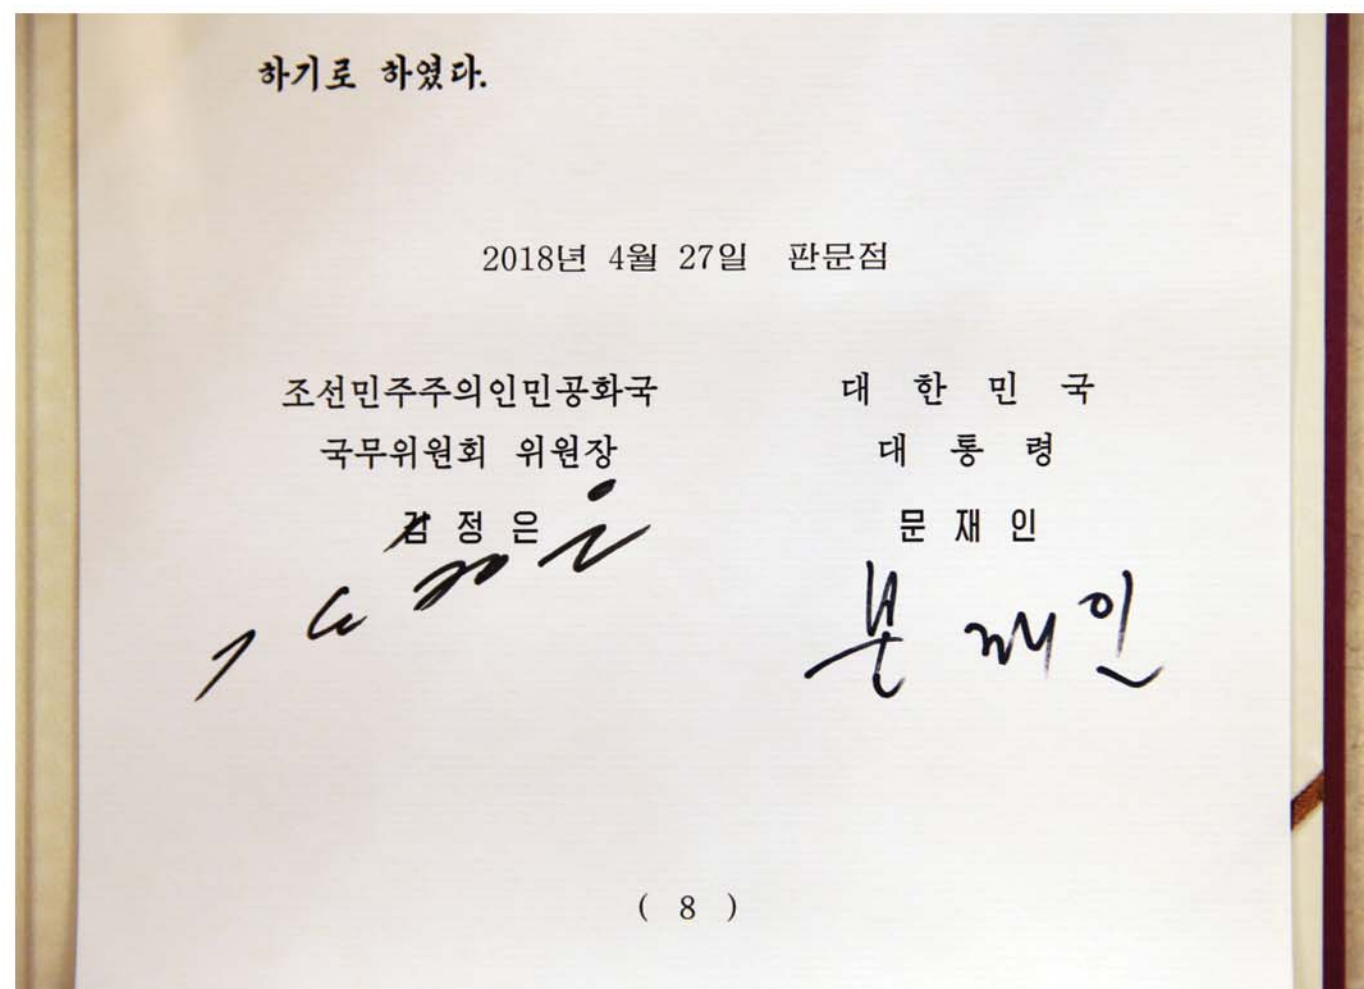 하기로 하였다.
2018년 4월 27일 판문점
조선민주주의인민공화국
국무위원회 위원장
김정은
대 한 민 국
대 통 령
문재인
문재인
( 8 )